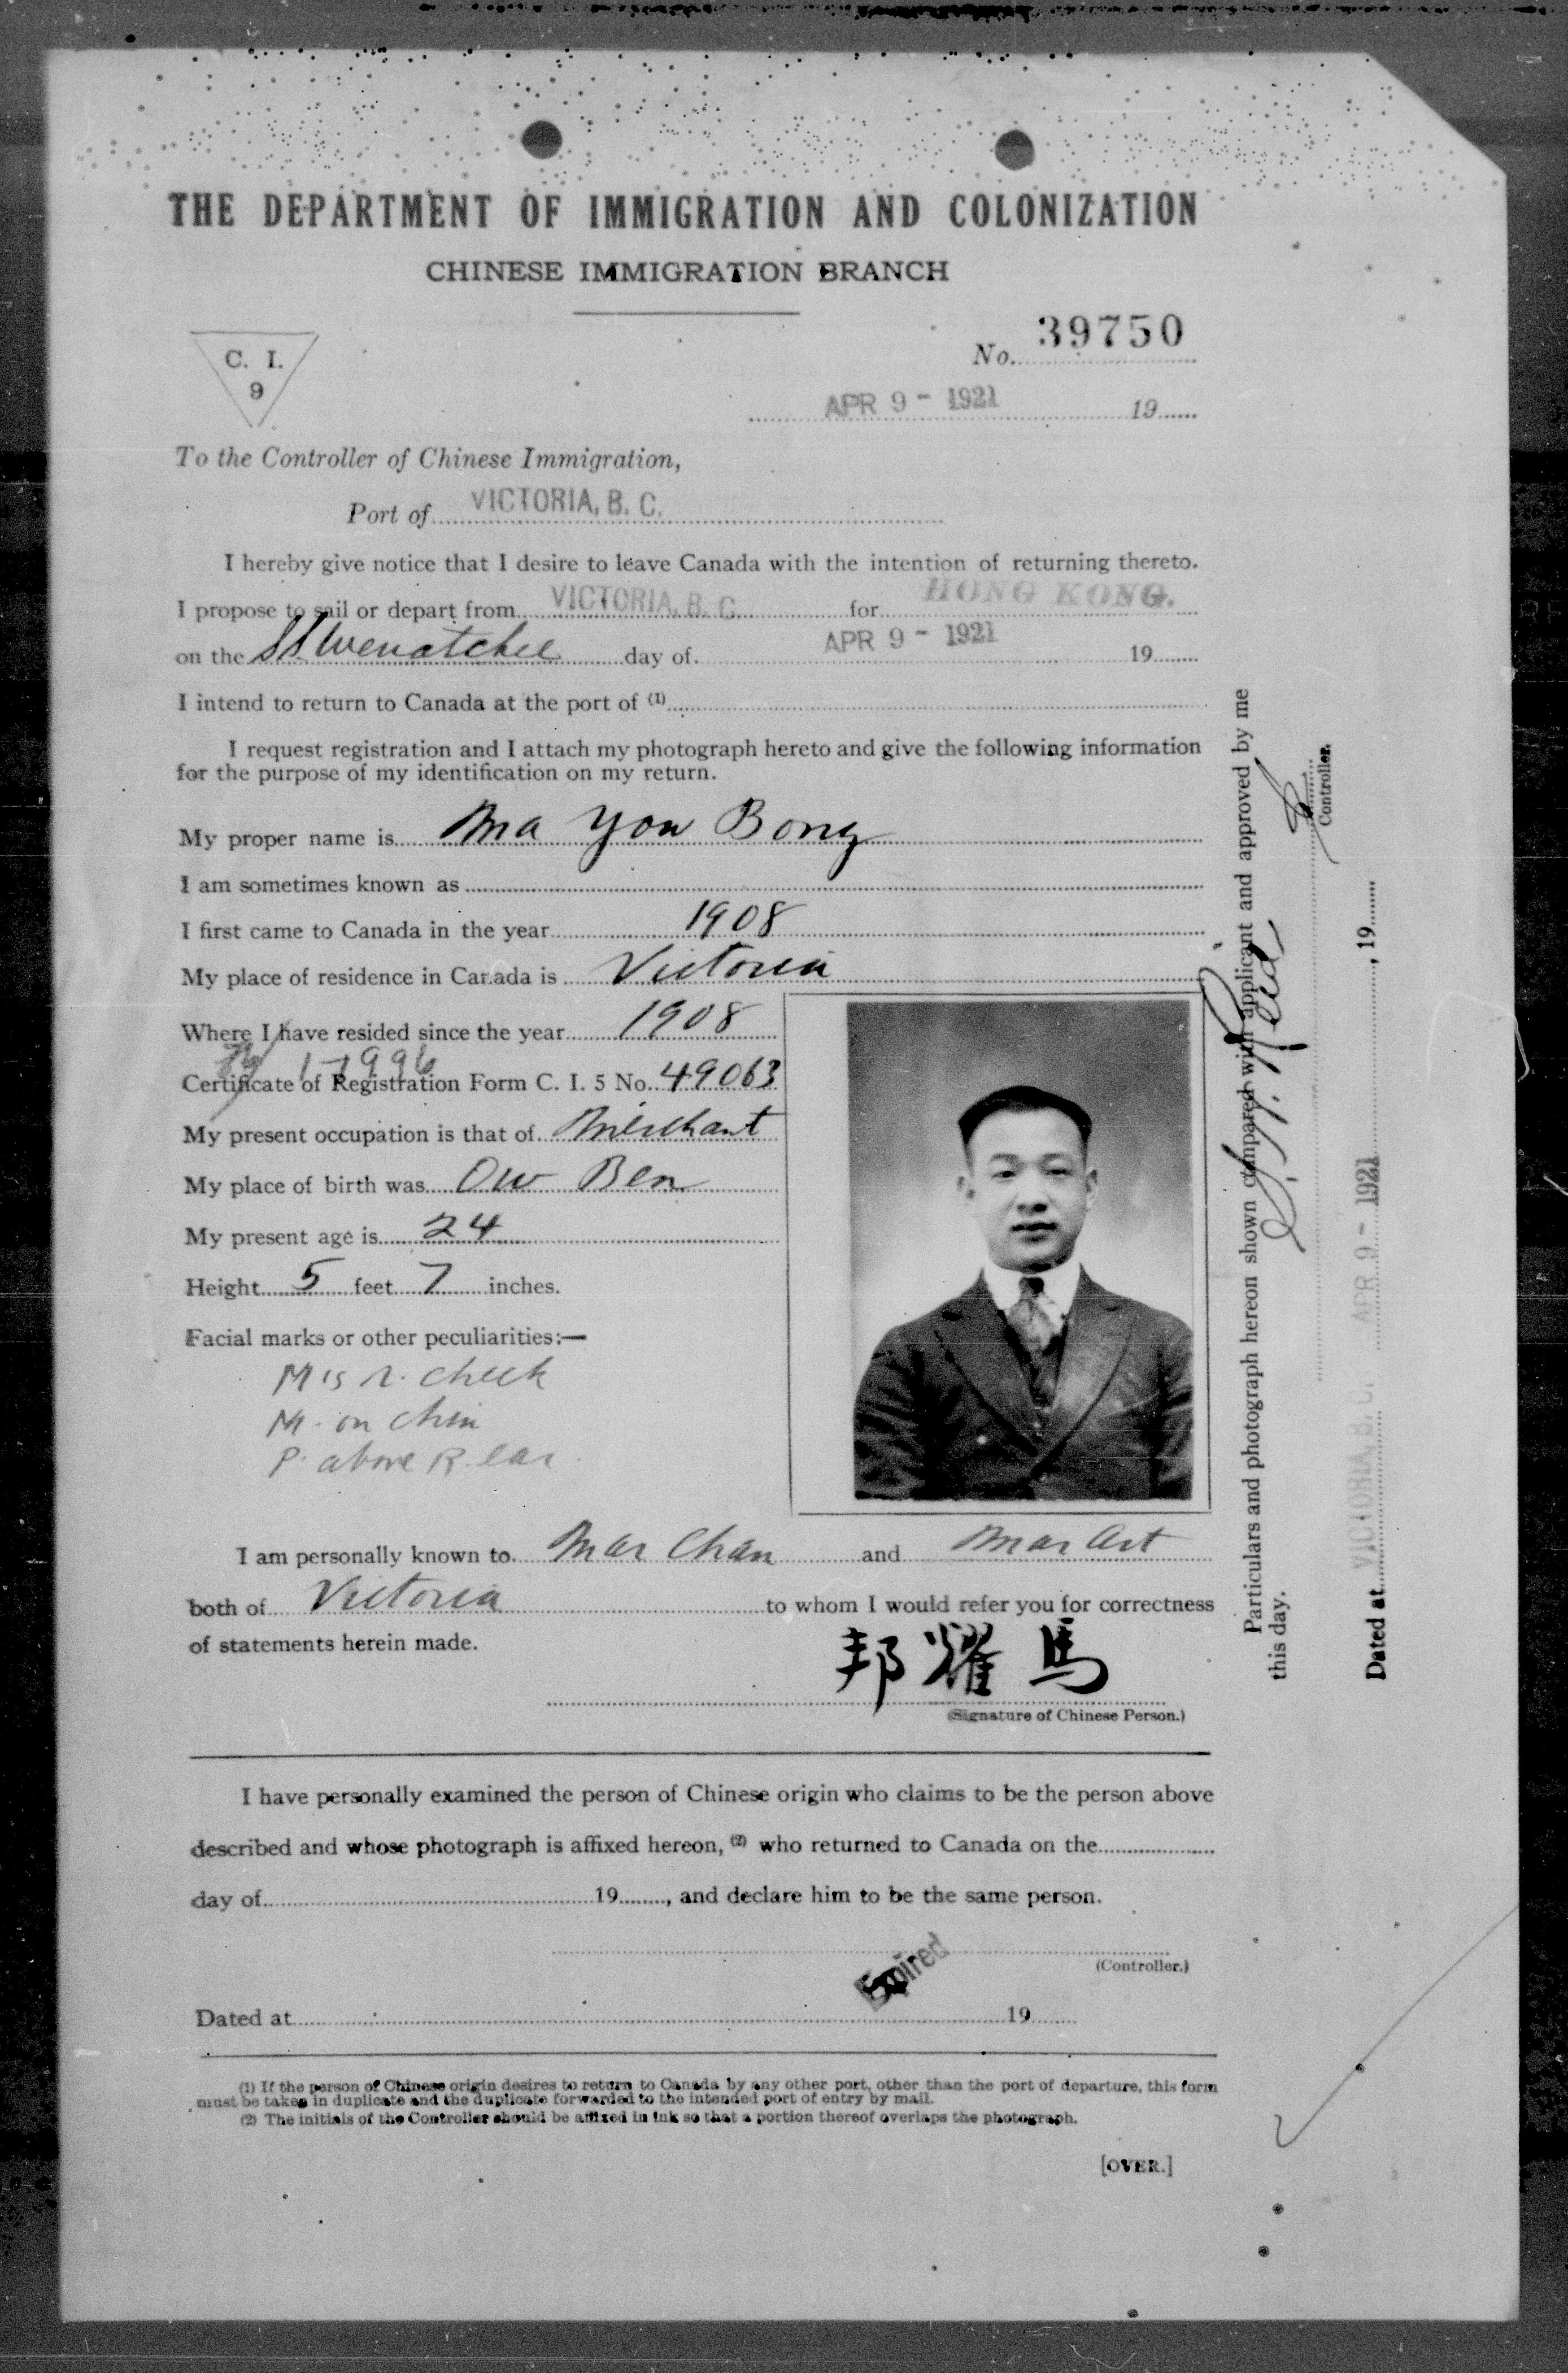 THE DEPARTMENT OF IMMIGRATION AND COLONIZATION
CHINESE IMMIGRATION BRANCH
C. I.
9
No. 39750
APR 9 - 1921 19
To the Controller of Chinese Immigration,
Port of VICTORIA, B. C.
I hereby give notice that I desire to leave Canada with the intention of returning thereto.
I propose to sail or depart from VICTORIA, B. C. for HONG KONG.
on the SS Wenatchee day of APR 9 - 1921 19
I intend to return to Canada at the port of (1)
I request registration and I attach my photograph hereto and give the following information
for the purpose of my identification on my return.
My proper name is Ma You Bong
I am sometimes known as
I first came to Canada in the year 1908
My place of residence in Canada is Victoria
Where I have resided since the year 1908
1-1996
Certificate of Registration Form C. I. 5 No. 49063
My present occupation is that of Merchant
My place of birth was Ow Ben
My present age is 24
Height 5 feet 7 inches.
Facial marks or other peculiarities:—
M is r. cheek
M. on chin
P. above R. ear
I am personally known to Mar Chan and Mar Art
both of Victoria to whom I would refer you for correctness
of statements herein made.
邦耀馬
(Signature of Chinese Person.)
I have personally examined the person of Chinese origin who claims to be the person above
described and whose photograph is affixed hereon, (2) who returned to Canada on the
day of 19, and declare him to be the same person.
(Controller.)
Expired
Dated at 19
(1) If the person of Chinese origin desires to return to Canada by any other port, other than the port of departure, this form
must be taken in duplicate and the duplicate forwarded to the intended port of entry by mail.
(2) The initials of the Controller should be affixed in ink so that a portion thereof overlaps the photograph.
[OVER.]
Particulars and photograph hereon shown compared with applicant and approved by me
this day.
Controller.
Dated at VICTORIA, B. C. APR 9 - 1921, 19